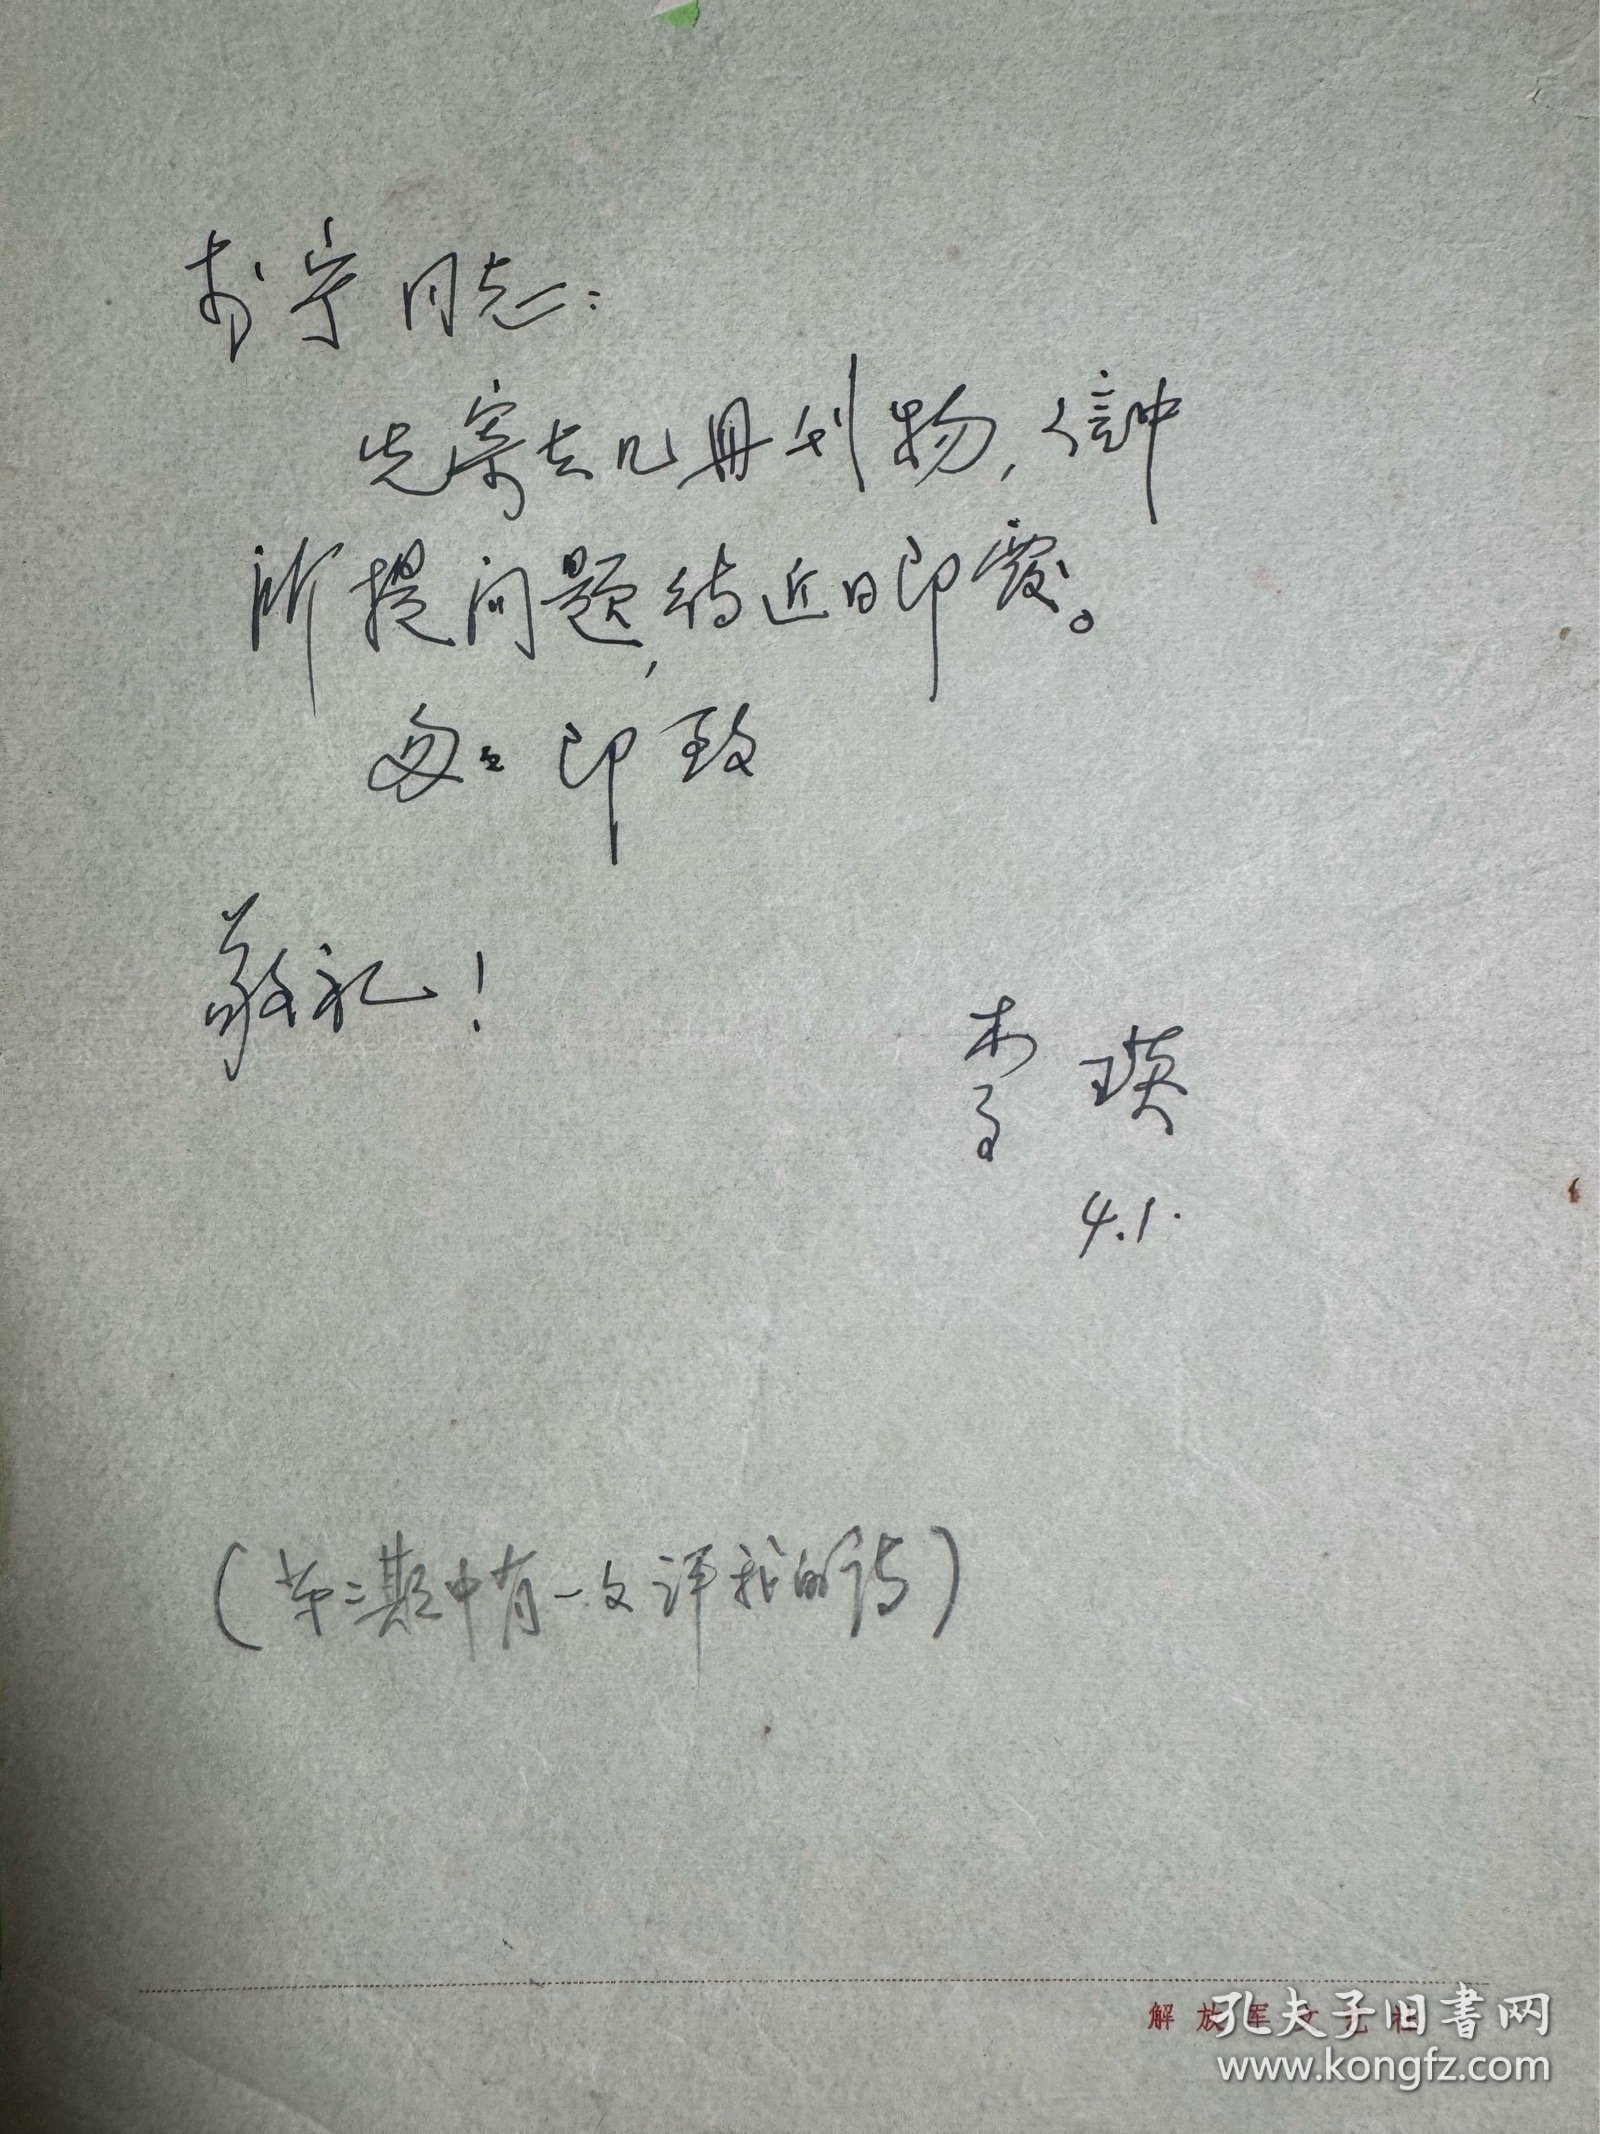 宁同志：
先寄去几册刊物，信中
所提问题，待近日即覆。
匆匆 即致
敬礼！
李瑛
4.1.
（第二期中有一文评我的诗）
解放军文艺社
孔夫子旧书网
www.kongfz.com